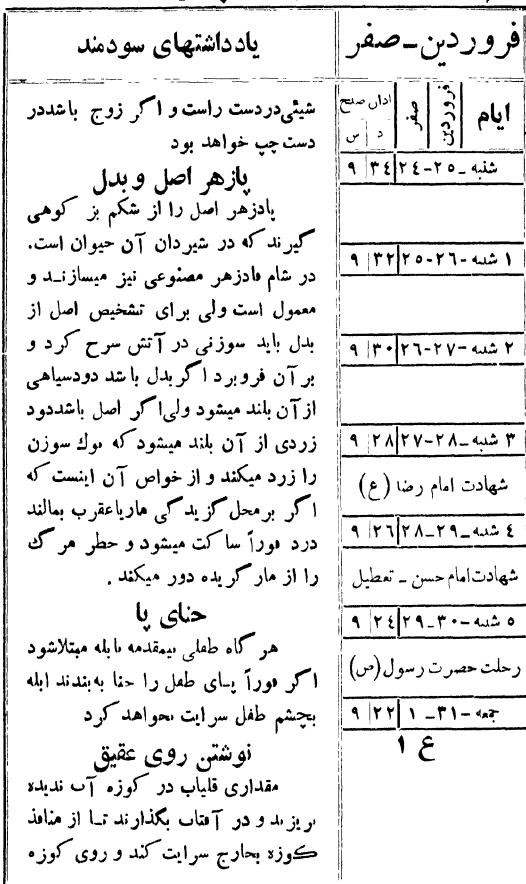 فروردین-صفر
ایام
فروردین
صفر
اذان صبح
د
س
شنبه -٢٥-٢٤ ٣٤ ٩
١ شنبه -٢٦-٢٥ ٣٢ ٩
٢ شنبه -٢٧-٢٦ ٣٠ ٩
٣ شنبه -٢٨-٢٧ ٢٨ ٩
شهادت امام رضا (ع)
٤ شنبه -٢٩-٢٨ ٢٦ ٩
شهادت امام حسن - تعطیل
٥ شنبه -٣٠-٢٩ ٢٤ ٩
رحلت حضرت رسول (ص)
جمعه -٣١- ١ ٢٢ ٩
ع ١
یادداشتهای سودمند
شیئی دردست راست و اگر زوج باشددر
دست چپ خواهد بود
پازهر اصل و بدل
پادزهر اصل را از شکم بز کوهی
گیرند که در شیردان آن حیوان است.
در شام پادزهر مصنوعی نیز میسازند و
معمول است ولی برای تشخیص اصل از
بدل باید سوزنی در آتش سرخ کرد و
بر آن فروبرد اگر بدل باشد دودسیاهی
از آن بلند میشود ولی اگر اصل باشددود
زردی از آن بلند میشود که نوك سوزن
را زرد میکند و از خواص آن اینست که
اگر بر محل گزیدگی ماریاعقرب بمالند
درد فوراً ساکت میشود و خطر مرگ
را از مار گزیده دور میکند .
حنای پا
هر گاه طفلی بیمقدمه بابله مبتلاشود
اگر فوراً پای طفل را حنا به بندند ابله
بچشم طفل سرایت نخواهد کرد
نوشتن روی عقیق
مقداری قلیاب در کوزه آب ندیده
بریزند و در آفتاب بگذارند تا از منافذ
کوزه بخارج سرایت کند و روی کوزه